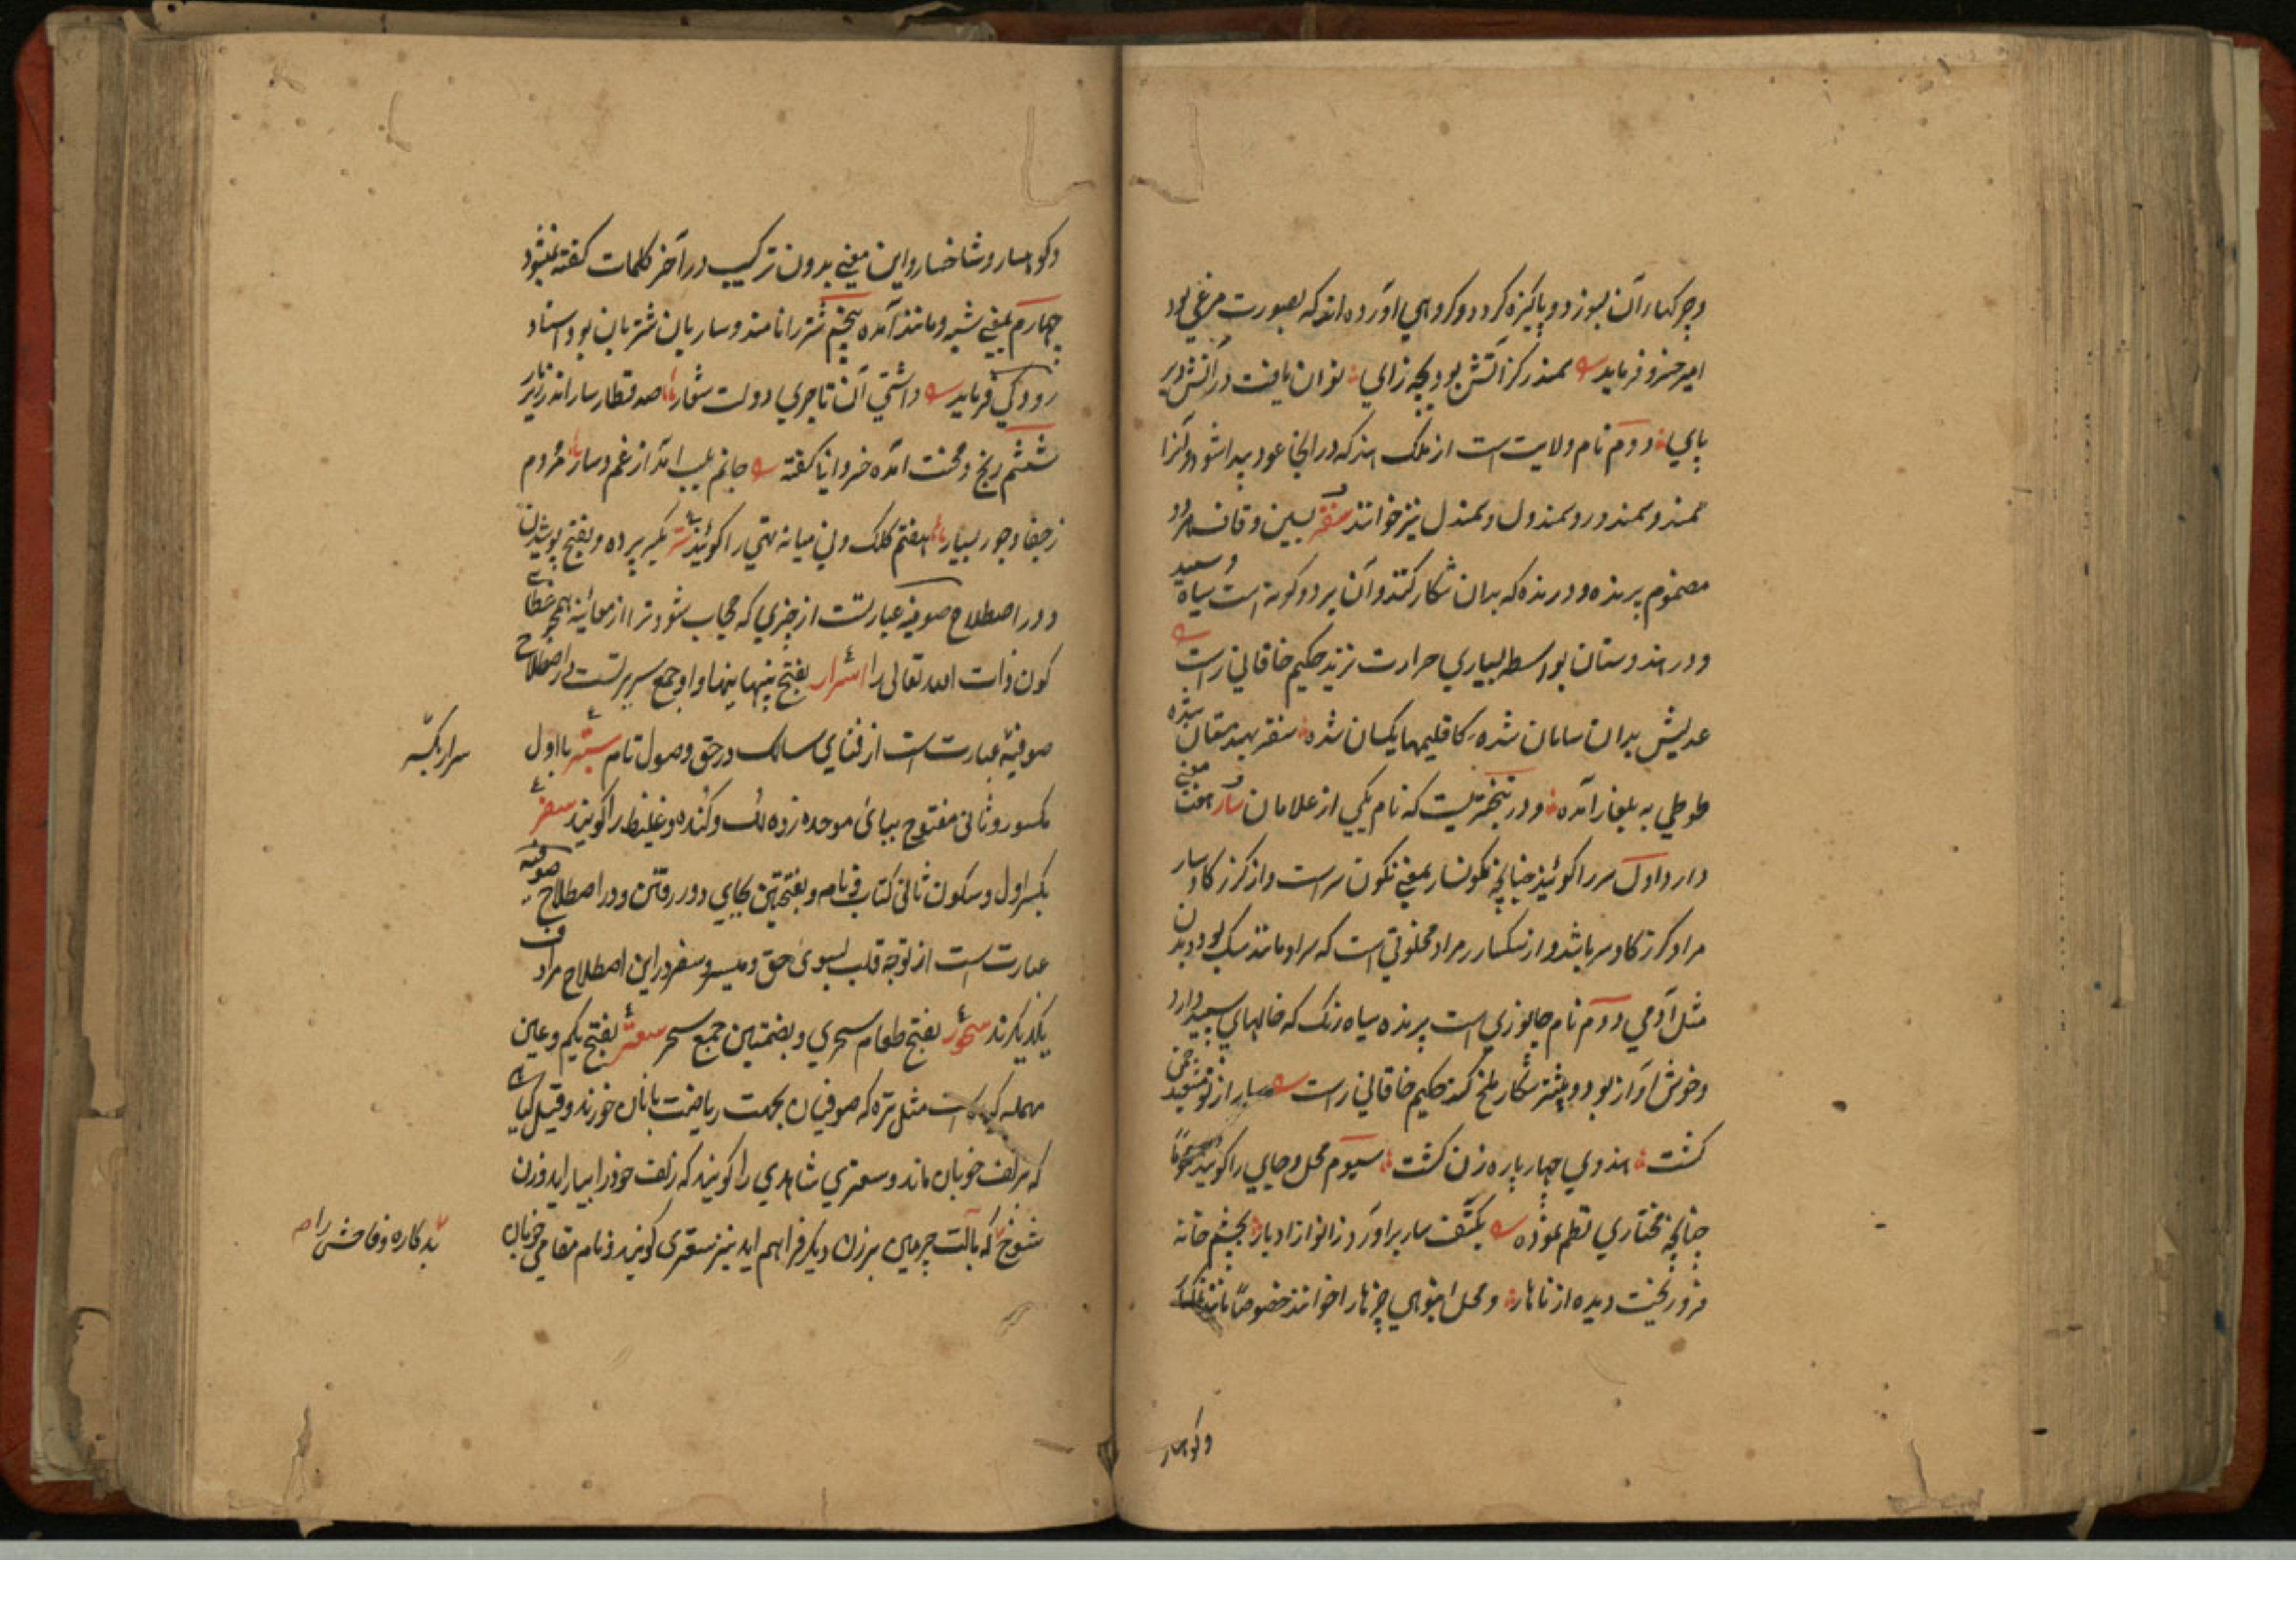 و چرکها از آن بسوزد و پاکیزه گردد و گروهی آورده اند که بصورت مرغی بود
امیر خسرو فرماید سمندر کز آتش بود بچه زای توان یافت در آتش دیر
پای دوم نام ولایت است از ملک هند که در انجا عود پیدا شود و آنرا
سمند و سمندور و سمندول و سمندل نیز خوانند سنقر بسین و قاف هر دو
مضموم پرنده و درنده که بدان شکار کنند و آن بر دو گونه است سیاه و سپید
و در هندوستان بواسطه بسیاری حرارت نزید حکیم خاقانی راست
عدلیش بدان سامان شده کاقلیمها یکسان شده سنقر بهندستان شده
طوطی به بلغار آمده و در نیختریست که نام یکی از غلامان سار هفت معنی
دارد اول سر را گویند چنانچه نگونسار بمعنی نگون سر است و از گرز گاوسار
مراد گرز گاو سر باشد و از سگسار مراد مخلوقی است که سر او مانند سگ بود و بدن
مثل آدمی دوم نام جانوری است پرنده سیاه رنگ که خالهای سپید دارد
و خوش آواز بود و بیشتر شکار ملخ کند حکیم خاقانی راست سار از تو مسبّح چمن
گشت هندوی چهار پاره زن گشت سیوم محل و جایی را گویند عموماً
چنانچه مختاری نظم نموده بکتف سار برآورد زانو از ادبار بچشم خانه
فرو ریخت دیده از ناهار و محل انبوهی چیزها را خوانند خصوصاً مانند
و کوهسار
و کوهسار و شاخسار و این معنی بدون ترکیب در آخر کلمات گفته نمیشود
چهارم بمعنی شبه و مانند آمده پنجم شتر را نامند و ساربان شتربان بود استاد
رودکی فرماید داشتی آن تاجری دولت شعار صد قطار سار اندر زیر بار
ششم رنج و محنت آمده خسروانی گفته جانم بلب آمد از غم و سار مردم
ز جفا و جور بسیار هفتم کلک و نی میانه تهی را گویند ستر بکسر پرده و بفتح پوشیدن
و در اصطلاح صوفیه عبارتست از چیزی که حجاب شود ترا از معاینه همچو غطای
کون ذات الله تعالی را اسرار بفتح پنهانیها و او جمع سریرتست در اصطلاح
صوفیه عبارت است از فنای سالک در حق وصول تام ستبر با اول
سرار بکسر
مکسور و ثانی مفتوح ببای موحده زده لک و گنده و غلیظ را گویند سفر
بکسر اول و سکون ثانی کتاب و نامه و بفتحتین بجایی دور رفتن و در اصطلاح صوفیه
عبارت است از توجه قلب بسوی حق و سیر و سفر در این اصطلاح مرادف
یکدیگرند سحور بفتح طعام سحری و بضمتین جمع سحر سعتر بفتح یکم و عین
مهمله گیاه است مثل تره که صوفیان بجهت ریاضت با نان خورند و قیل گیاهی
که بزلف خوبان ماند و سعتری شاهدی را گویند که زلف خود را بیاراید و زن
شوخ که بآلت چرمین بر زن دیگر فراهم آید نیز سعتری گویند و نام مقامی خوبان
بدکاره و فاحش را